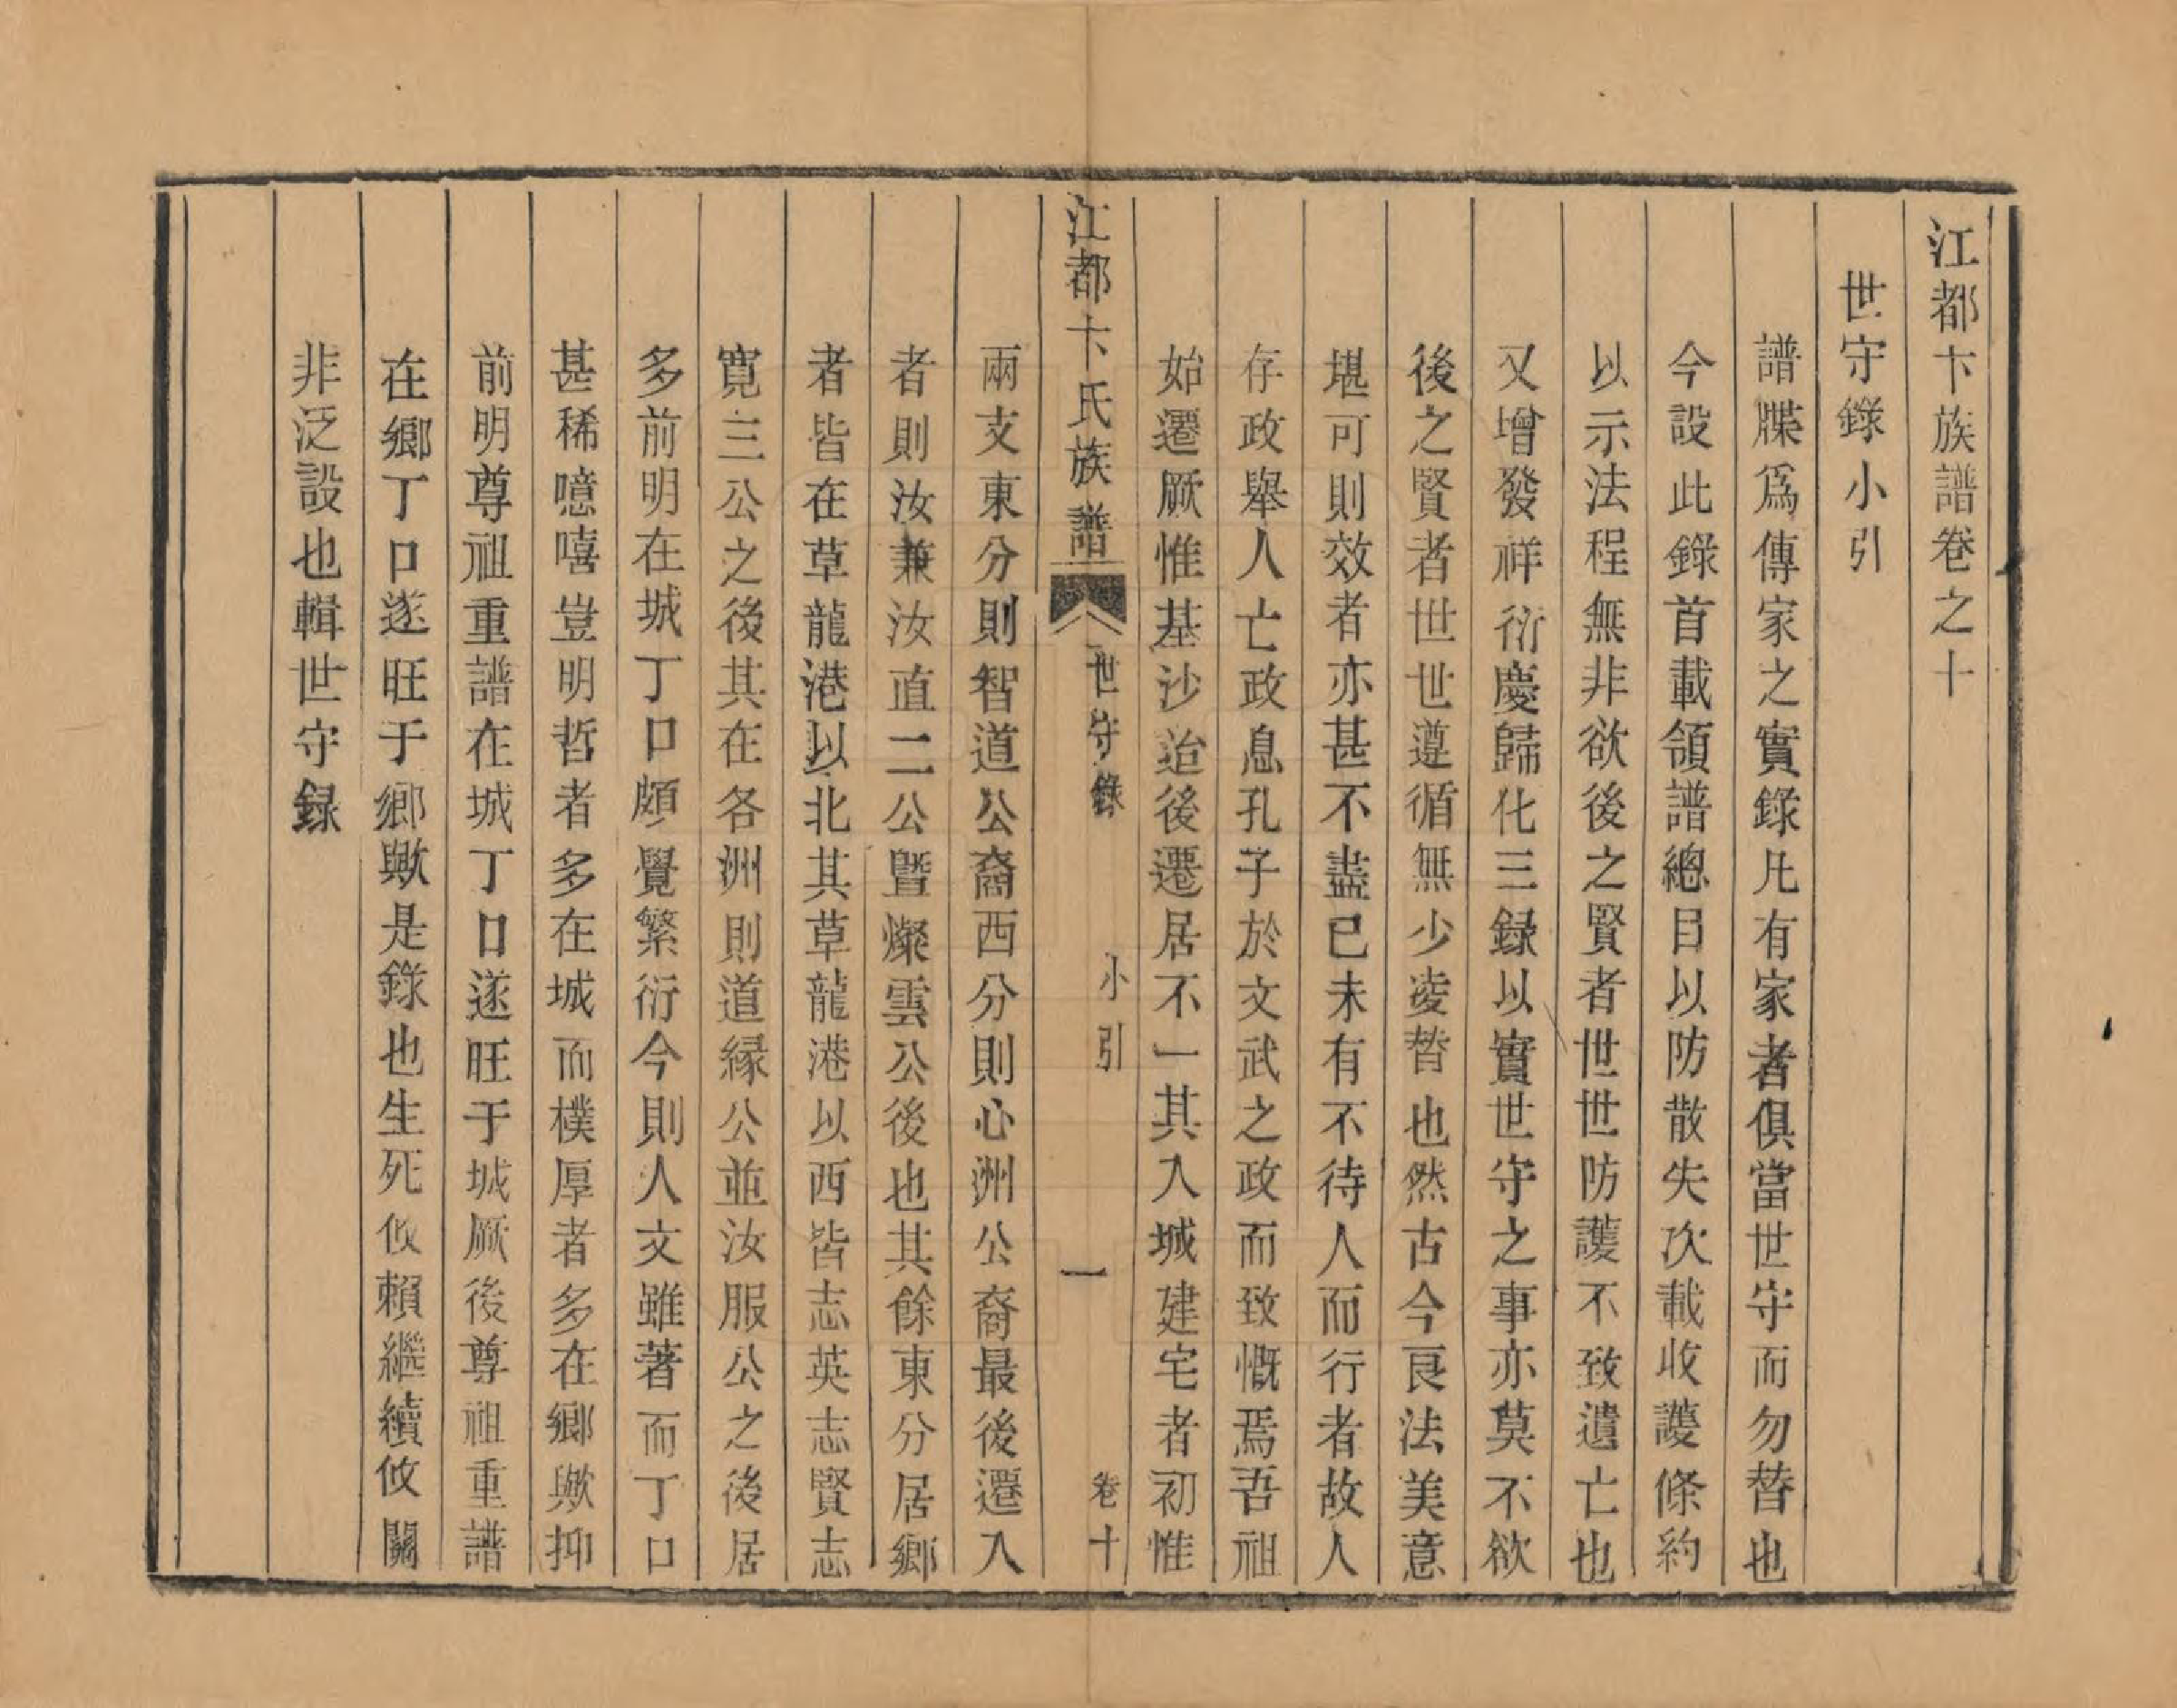 江都卞族譜卷之十
世守錄小引
譜牒爲傳家之實錄凡有家者俱當世守而勿替也
今設此錄首載領譜總目以防散失次載收護條約
以示法程無非欲後之賢者世世防護不致遺亡也
又增發祥衍慶歸化三録以實世守之事亦莫不欲
後之賢者世世遵循無少凌替也然古今良法美意
堪可則效者亦甚不盡已未有不待人而行者故人
存政舉人亡政息孔子於文武之政而致慨焉吾祖
始遷厥惟基沙迨後遷居不一其入城建宅者初惟
江都卞氏族譜 世守錄 小引 一 卷十
兩支東分則智道公裔西分則心洲公裔最後遷入
者則汝兼汝直二公暨燦雲公後也其餘東分居鄉
者皆在草龍港以北其草龍港以西皆志英志賢志
寬三公之後其在各洲則道緣公並汝服公之後居
多前明在城丁口頗覺繁衍今則人文雖著而丁口
甚稀噫嘻豈明哲者多在城而樸厚者多在鄉歟抑
前明尊祖重譜在城丁口遂旺于城厥後尊祖重譜
在鄉丁口遂旺于鄉歟是錄也生死攸賴繼續攸關
非泛設也輯世守録